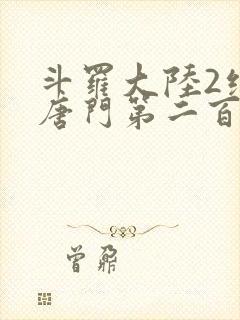 斗羅大陸2
唐門第二百
曾鄹